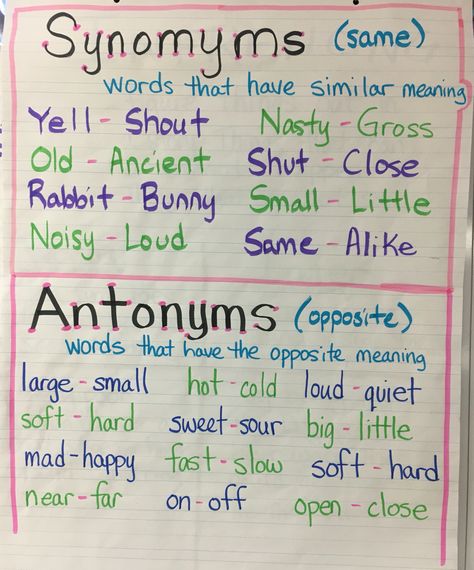 Synomyms (same)
words that have similar meaning
Yell - Shout Nasty - Gross
Old - Ancient Shut - Close
Rabbit - Bunny Small - Little
Noisy - Loud Same - Alike
Antonyms (opposite)
words that have the opposite meaning
large - small hot - cold loud - quiet
soft - hard sweet - sour big - little
mad - happy fast - slow soft - hard
near - far on - off open - close